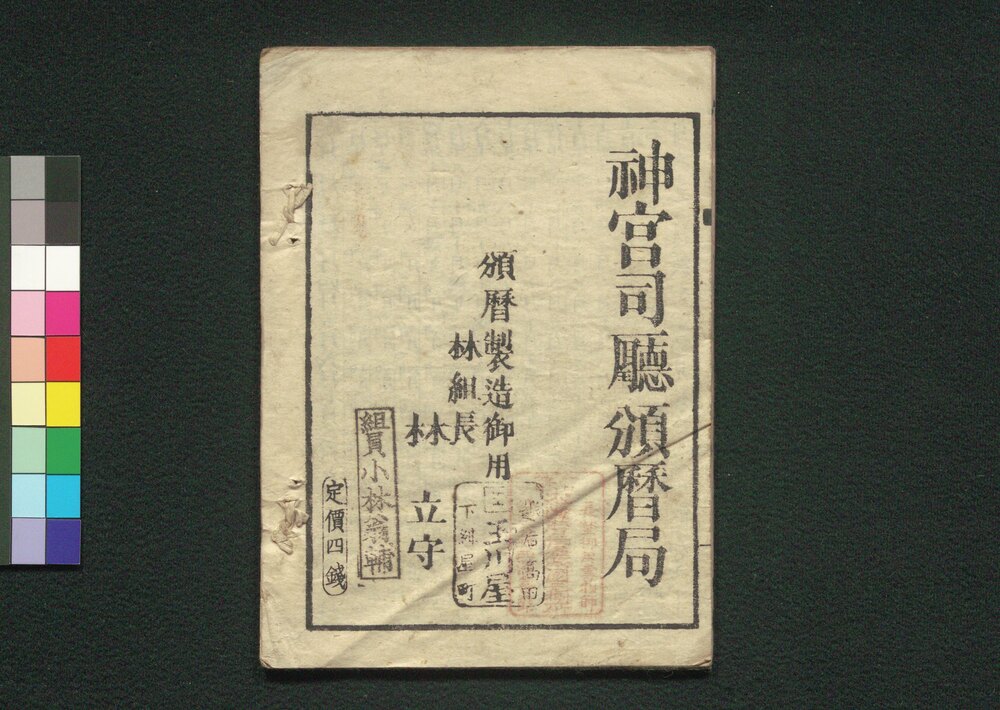 神宮司廳頒暦局
頒暦製造御用
林組長
林 立守
組員小林翁輔
定價四錢
越后高田
玉川屋
下紺屋町